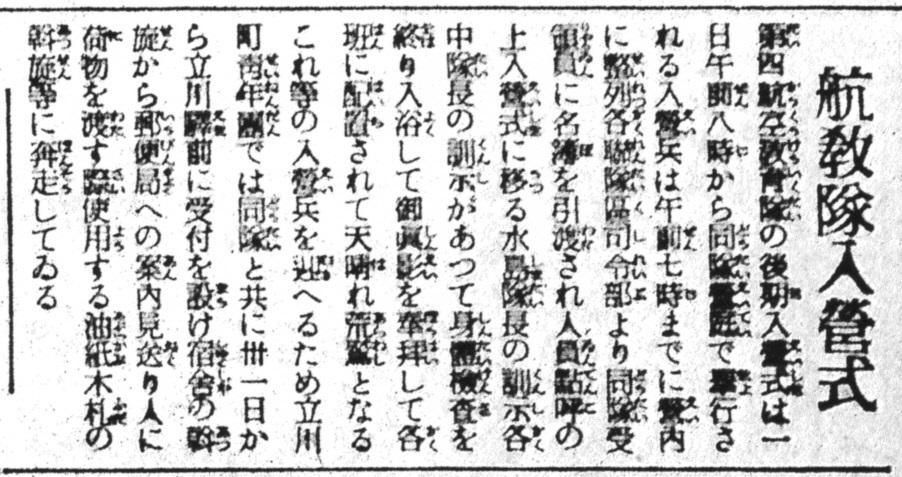 航教隊入營式
第四航空教育隊の後期入營式は一
日午前八時から同隊營庭で擧行さ
れる入營兵は午前七時までに營內
に整列各聯隊區司令部より同隊受
領員に名簿を引渡され人員點呼の
上入營式に移る水島隊長の訓示各
中隊長の訓示があつて身體檢査を
終り入浴して御眞影を奉拜して各
班に配置されて天晴れ荒鷲となる
これ等の入營兵を迎へるため立川
町靑年團では同隊と共に卅一日か
ら立川驛前に受付を設け宿舍の斡
旋から郵便局への案內見送り人に
荷物を渡す際使用する油紙木札の
斡旋等に奔走してゐる